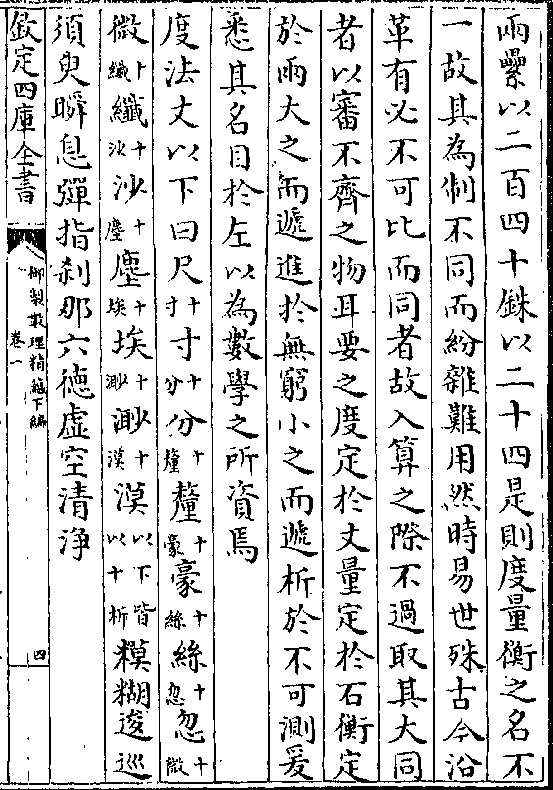 兩纍以二百四十銖以二十四是則度量衡之名不
一故其為制不同而紛雜難用然時易世殊古今沿
革有必不可比而同者故入算之際不過取其大同
者以審不齊之物耳要之度定於丈量定於石衡定
於兩大之而遞進於無窮小之而遞析於不可測爰
悉其名目於左以為數學之所資焉
度法丈以下曰尺十寸寸十分分十釐釐十豪豪十絲絲十忽忽十微
微十纖纖十沙沙十塵塵十埃埃十渺渺十漠漠以下皆以十析糢糊逡巡
須臾瞬息彈指刹那六德虛空清淨
欽定四庫全書
御製數理精蘊下編
卷一
四